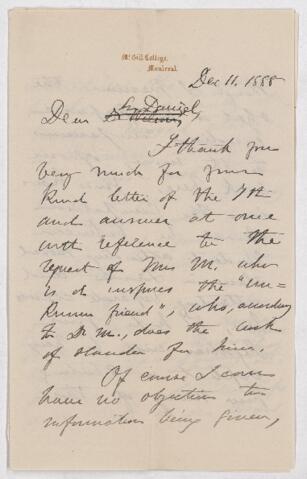 McGill College,
Montreal.
Dec 11. 1888
Dear Sir Daniel,
I thank you
very much for your
kind letter of the 7th
and answer at once
with reference to the
request of Mrs M. who
is or inspires the "un-
known friend", who, according
to Dr M., does the work
of slander for him.
Of course I can
have no objection to
information being given,